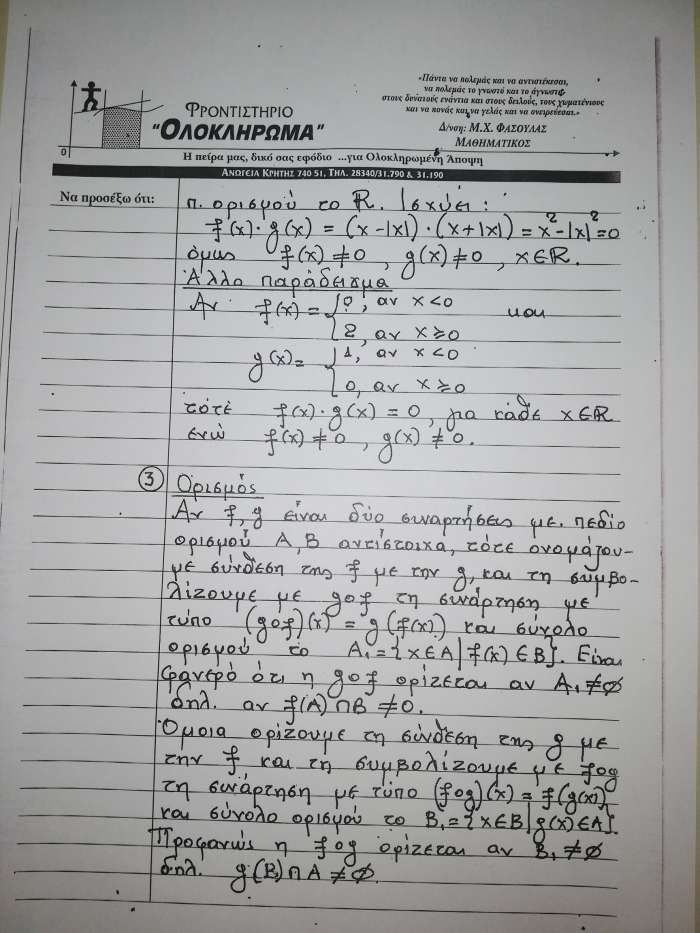 «Πάντα να πολεμάς και να αντιστέκεσαι,
να πολεμάς το γνωστό και το άγνωστο
στους δυνατούς ενάντια και στους δειλούς, τους χωματένιους
και να πονάς και να γελάς και να ονειρεύεσαι.»
ΦΡΟΝΤΙΣΤΗΡΙΟ
"ΟΛΟΚΛΗΡΩΜΑ"
Δ/νση: Μ.Χ. ΦΑΣΟΥΛΑΣ
ΜΑΘΗΜΑΤΙΚΟΣ
0
Η πείρα μας, δικό σας εφόδιο ...για Ολοκληρωμένη Άποψη
ΑΝΩΓΕΙΑ ΚΡΗΤΗΣ 740 51, ΤΗΛ. 28340/31.790 & 31.190
Να προσέξω ότι:
π. ορισμού το ℝ. Ισχύει:
f(x)·g(x) = (x-|x|)·(x+|x|) = x²-|x|²=0
όμως f(x)≠0, g(x)≠0, x∈ℝ.
Άλλο παράδειγμα
Αν f(x) = { 0, αν x<0 και
2, αν x≥0
g(x)= { 1, αν x<0
0, αν x≥0
τότε f(x)·g(x) = 0, για κάθε x∈ℝ
ενώ f(x)≠0, g(x)≠0.
③ Ορισμός
Αν f,g είναι δύο συναρτήσεις με πεδίο
ορισμού A,B αντίστοιχα, τότε ονομάζου-
με σύνθεση της f με την g, και τη συμβο-
λίζουμε με gof τη συνάρτηση με
τύπο (gof)(x) = g(f(x)) και σύνολο
ορισμού το A₁={x∈A|f(x)∈B}. Είναι
φανερό ότι η gof ορίζεται αν A₁≠∅
δηλ. αν f(A)∩B≠0.
Όμοια ορίζουμε τη σύνθεση της g με
την f και τη συμβολίζουμε με fog
τη συνάρτηση με τύπο (fog)(x) = f(g(x))
και σύνολο ορισμού το B₁={x∈B|g(x)∈A}.
Προφανώς η fog ορίζεται αν B₁≠∅
δηλ. g(B)∩A≠∅.